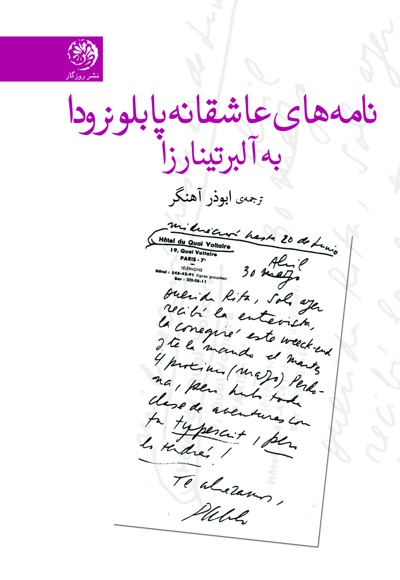 نشر روزگار
نامه‌های عاشقانه پابلو نرودا
به آلبرتینا رزا
ترجمه‌ی ابوذر آهنگر
hasta 20 de Junio
Hôtel du Quai Voltaire
19, Quai Voltaire
PARIS - 7e
TÉLÉPHONE
Abril
30 marzo
Querida Rita, Solo ayer
recibí la entrevista,
la conseguí este week-end
y te la mando el martes
4 próximo (marzo) Perdo-
na, pero hubo toda
clase de aventuras con
tu typescript, pero
lo tendré!
Te abrazamos,
Pablo